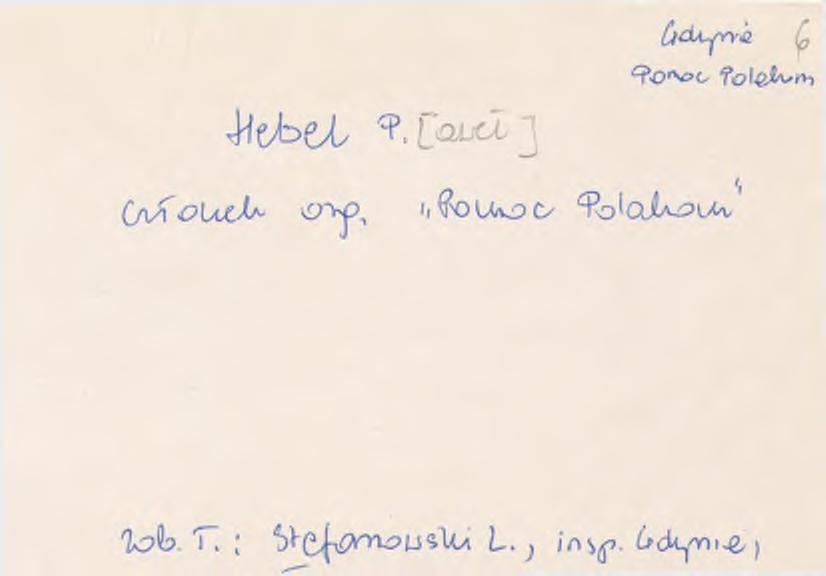 Gdynia 6
Pomoc Polakom
Hebel P. [aweł]
członek org. „Pomoc Polakom"
zob. T.: Stefanowski L., insp. Gdynia,